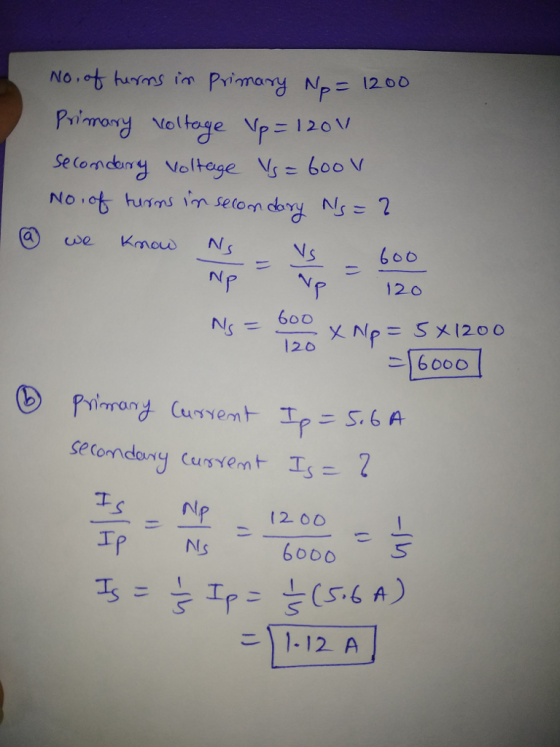 No. of turns in Primary Np = 1200
Primary voltage Vp = 120V
Secondary Voltage Vs = 600 V
No. of turns in secondary Ns = ?
(a) we know Ns/Np = Vs/Vp = 600/120
Ns = 600/120 × Np = 5 × 1200
= 6000
(b) Primary Current Ip = 5.6 A
secondary current Is = ?
Is/Ip = Np/Ns = 1200/6000 = 1/5
Is = 1/5 Ip = 1/5 (5.6 A)
= 1.12 A